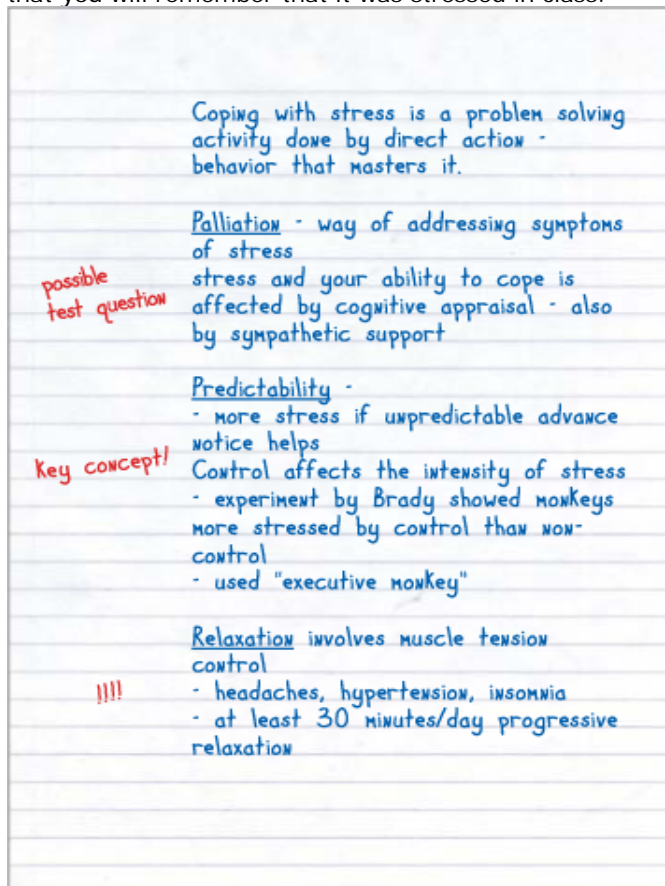 that you will remember that it was stressed in class.
Coping with stress is a problem solving
activity done by direct action -
behavior that masters it.
Palliation - way of addressing symptoms
of stress
possible
test question
stress and your ability to cope is
affected by cognitive appraisal - also
by sympathetic support
Predictability -
- more stress if unpredictable advance
notice helps
Key concept!
Control affects the intensity of stress
- experiment by Brady showed monkeys
more stressed by control than non-
control
- used "executive monkey"
Relaxation involves muscle tension
control
!!!!
- headaches, hypertension, insomnia
- at least 30 minutes/day progressive
relaxation